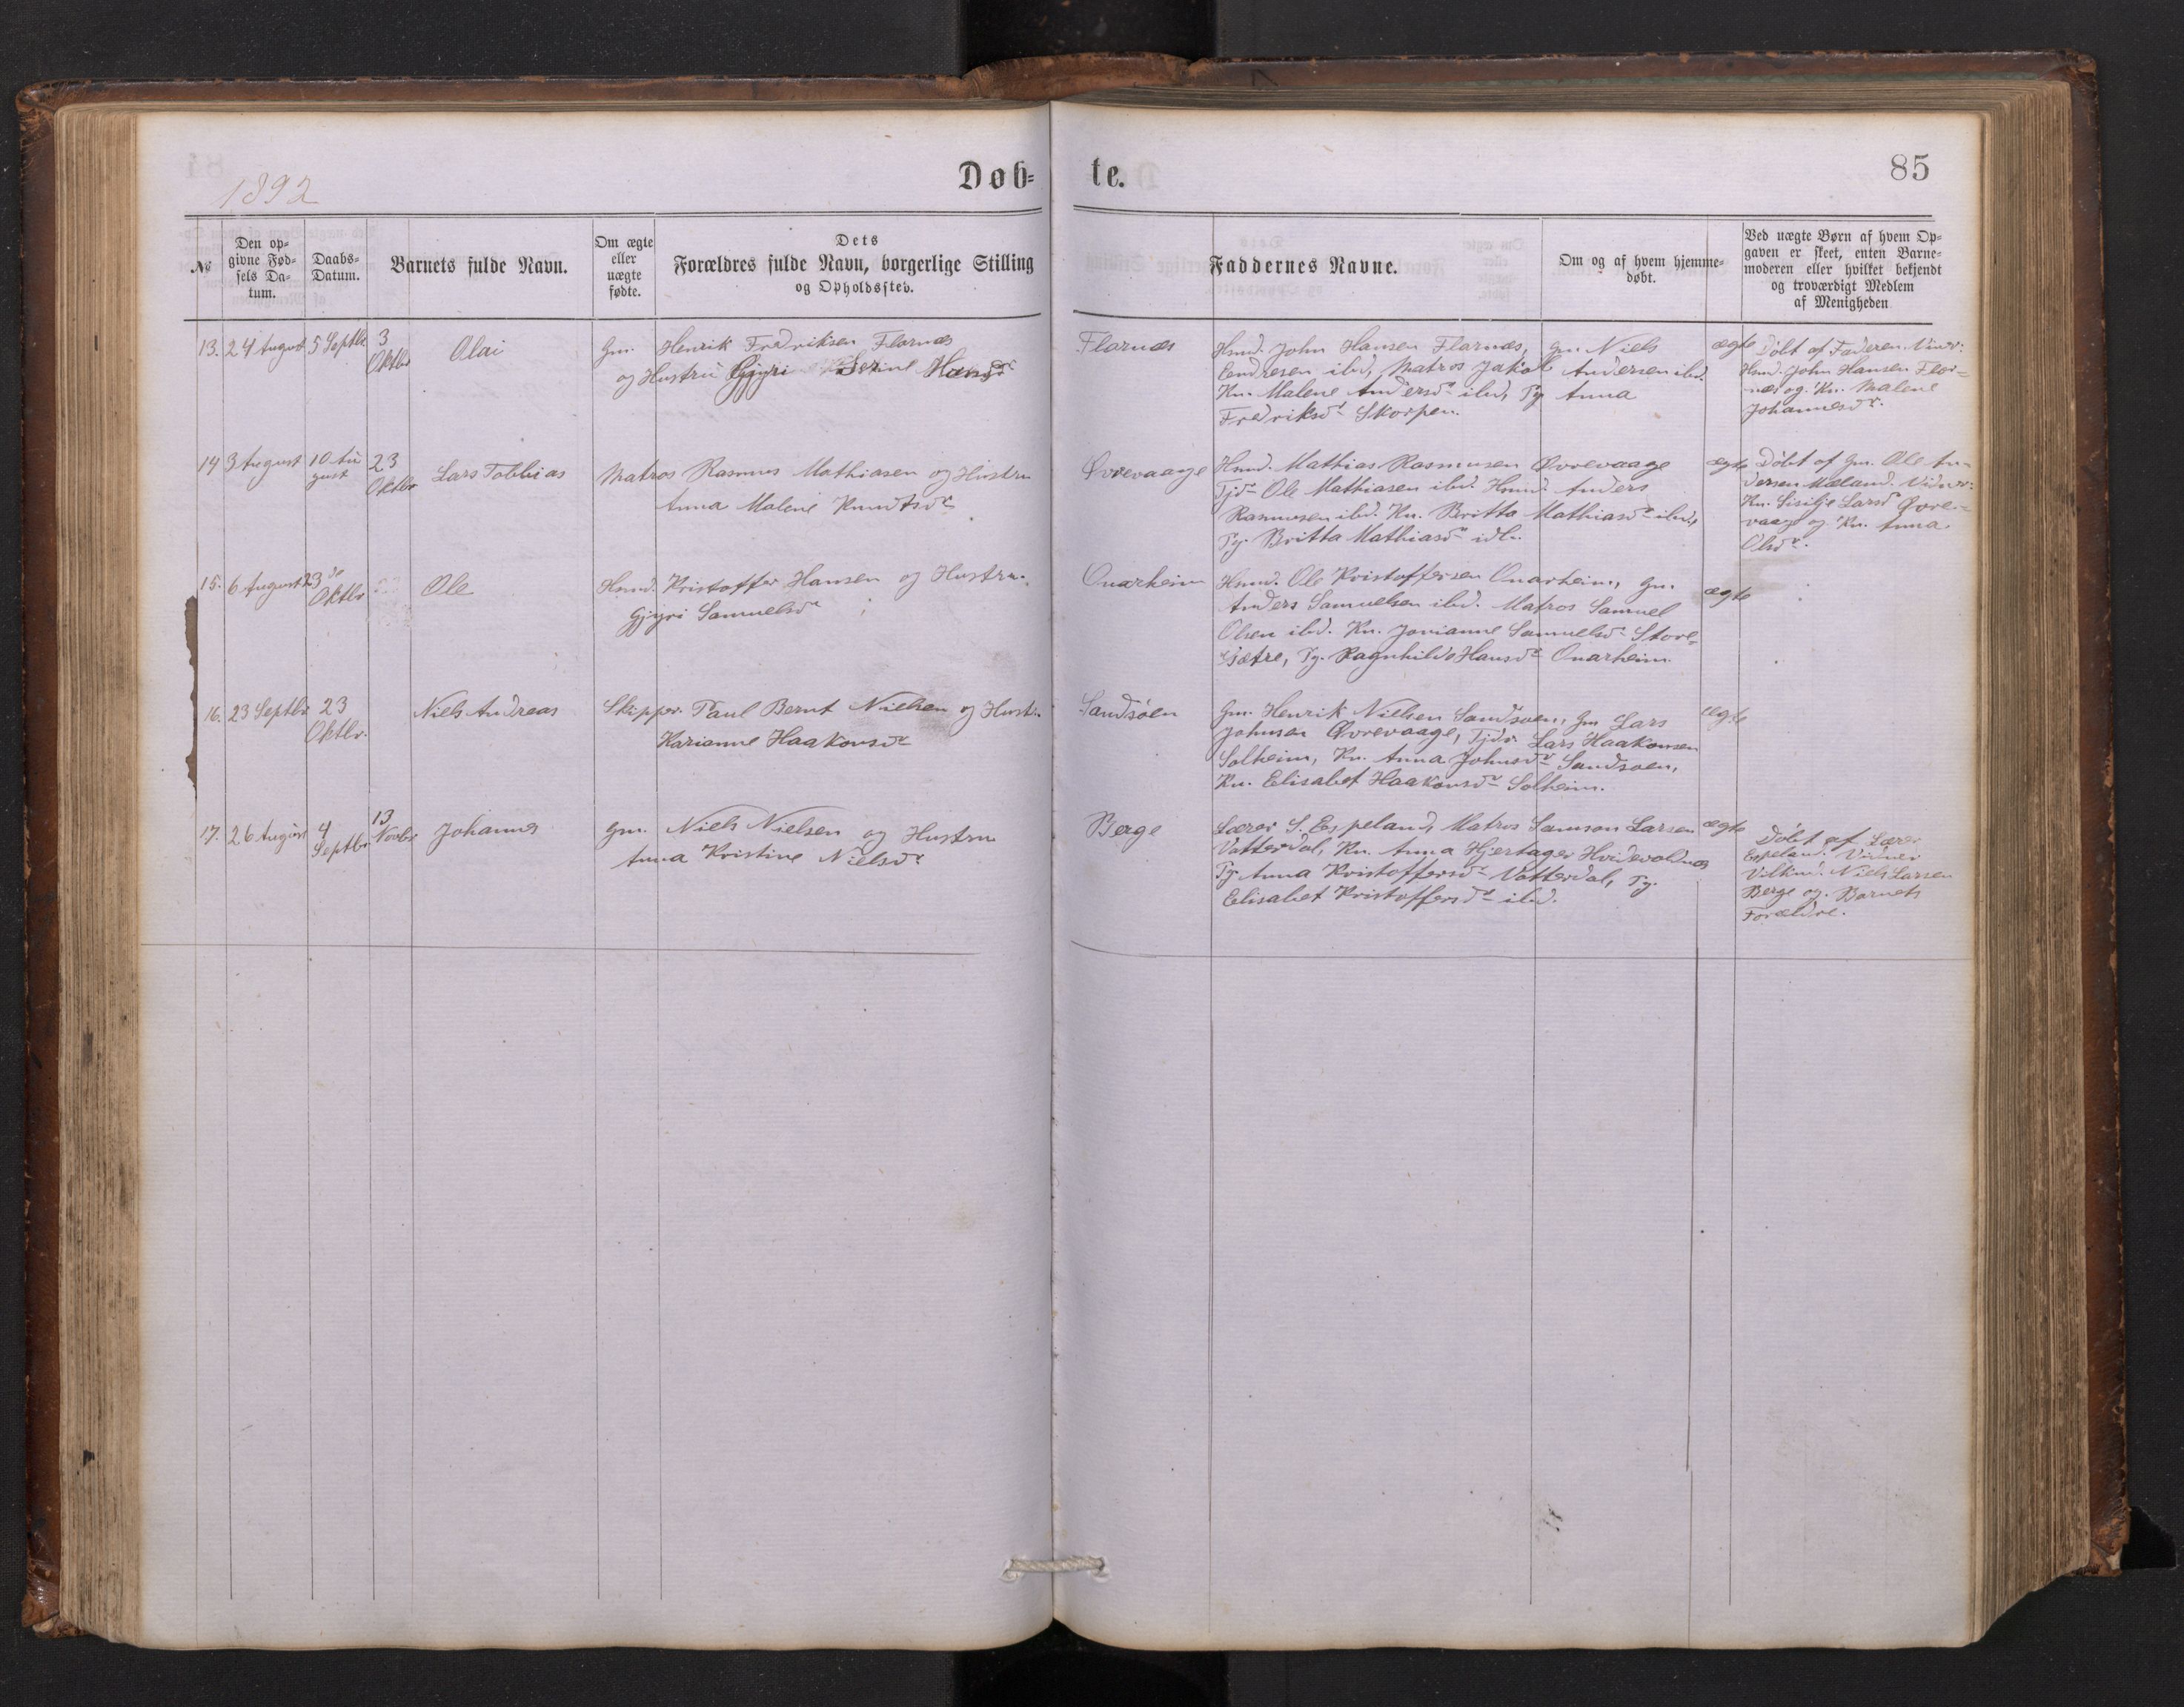 1892
Døb=
te.
85
No
Den op=
givne Fød=
sels Da=
tum.
Daabs=
Datum.
Barnets fulde Navn.
Om ægte
eller
uægte
fødte.
Dets
Forældres fulde Navn, borgerlige Stilling
og Opholdssted.
Faddernes Navne.
Om og af hvem hjemme=
døbt.
Ved uægte Børn af hvem Op=
gaven er skeet, enten Barne=
moderen eller hvilket bekjendt
og troværdigt Medlem
af Menigheden
13. 24 August 5 Septbr 3 Oktbr Olai
Gm. Henrik Fredriksen Flornæs
og Hustru Gjyri Serine Hansdr
Flornæs
Hsmd. John Hansen Flornæs, Gm Niels
Endresen ibd, Matros Jakob Andersen ibd.
Kn. Malene Andersdr ibd, Pg Anna
Fredriksdr Skorpen.
ægte
Døbt af Faderen. Vidnr:
Hsmd. John Hansen Flor=
næs og Kn. Malene
Johannesdr.
14 3 August 10 Au
gust 23
Oktbr Lars Tobbias
Matros Rasmus Mathiasen og Hustru
Anna Malene Knudtsdr
Øvrevaage
Hsmd. Mathias Rasmusen Øvrevaage
Tjdr Ole Mathiasen ibd. Hsmd. Anders
Rasmusen ibd. Kn. Britta Mathiasdr ibd,
Pg. Britta Mathiasdr ibd.
ægte
Døbt af Gm. Ole An=
dersen Mæland. Vidnr:
Kn. Sisilje Larsdr Øvre=
vaage og Kn. Anna
Olsdr.
15. 6 August 23de
Oktbr Ole
Hsmd. Kristoffer Hansen og Hustru
Gjyri Samuelsdr
Onarheim
Hsmd. Ole Kristoffersen Onarheim, Gm.
Anders Samuelsen ibd. Matros Samuel
Olsen ibd. Kn. Jorianne Samuelsdr Store=
sætre, Pg. Ragnhilde Hansdr Onarheim.
ægte
16. 23 Septbr 23
Oktbr. Niels Andreas
Skipper Paul Bernt Nielsen og Hustru
Karianne Haakonsdr
Sandsøen
Gm. Henrik Nielsen Sandsøen, Gm Lars
Johnsen Øvrevaage, Tjdr. Lars Haakonsen
Solheim, Kn. Anna Johnsdr Sandsøen,
Kn. Elisabet Haakonsdr Solheim.
ægte
17. 26 August 4
Septbr 13
Novbr Johannes
Gm. Niels Nielsen og Hustru
Anna Kristine Nielsdr
Berge
Lærer S. Espeland, Matros Samson Larsen
Vatterdal, Kn. Anna Hjertager Hvidevoldnes
Pg Anna Kristoffersdr Vatterdal, Pg.
Elisabet Kristoffersdr ibd.
ægte
Døbt af Lærer
Espeland. Vidner
Vilkmd. Niels Larsen
Berge og Barnets
Forældre.